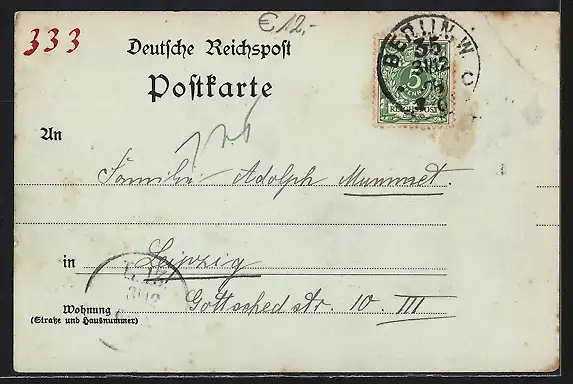 € 12.-
333
Deutsche Reichspost
Postkarte
BERLIN W.
5
REICHSPOST
An
Familie Adolph Mummet.
in Leipzig
Wohnung Gottsched str. 10. III
(Straße und Hausnummer)